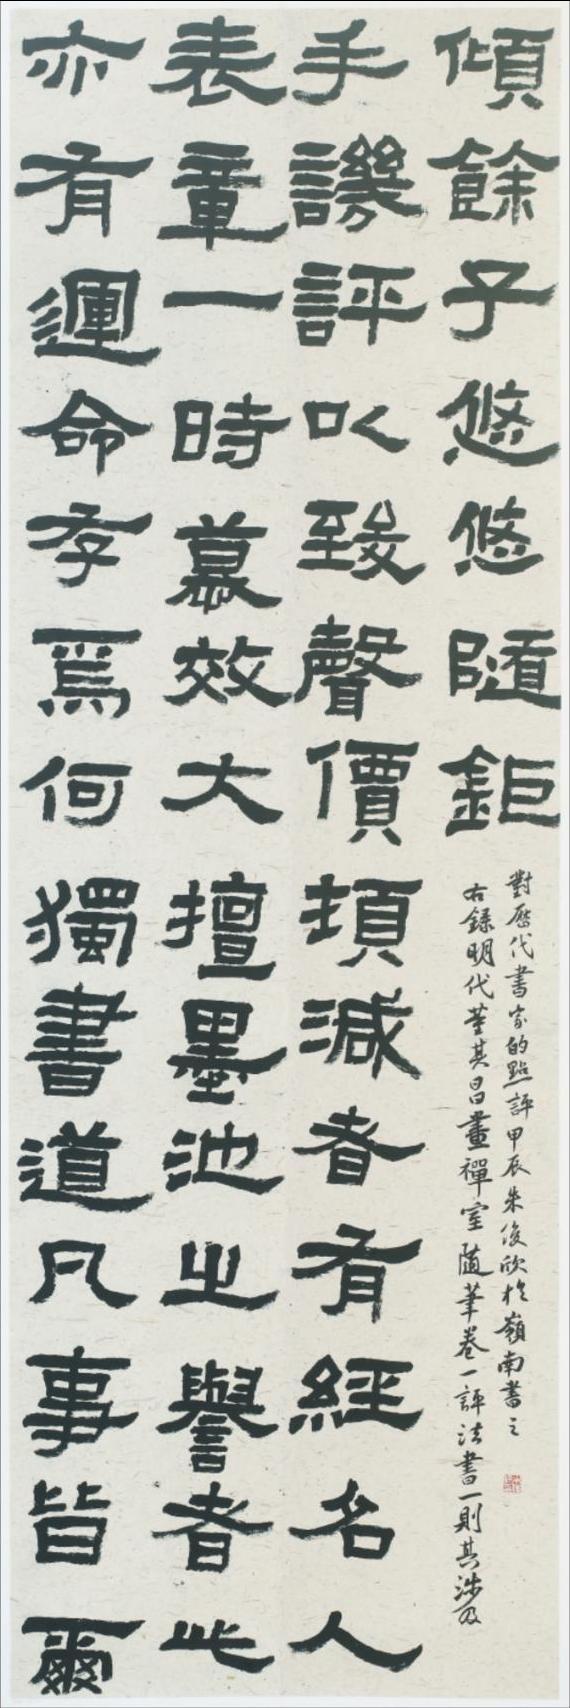 傾餘子悠悠隨鉅
手譏評以致聲價頓減者有經名人
表章一時慕效大擅墨池之譽者此
亦有運命存焉何獨書道凡事皆爾
右錄明代董其昌畫禪室隨筆卷一評法書一則其涉及
對歷代書家的點評甲辰朱俊欣於嶺南書之